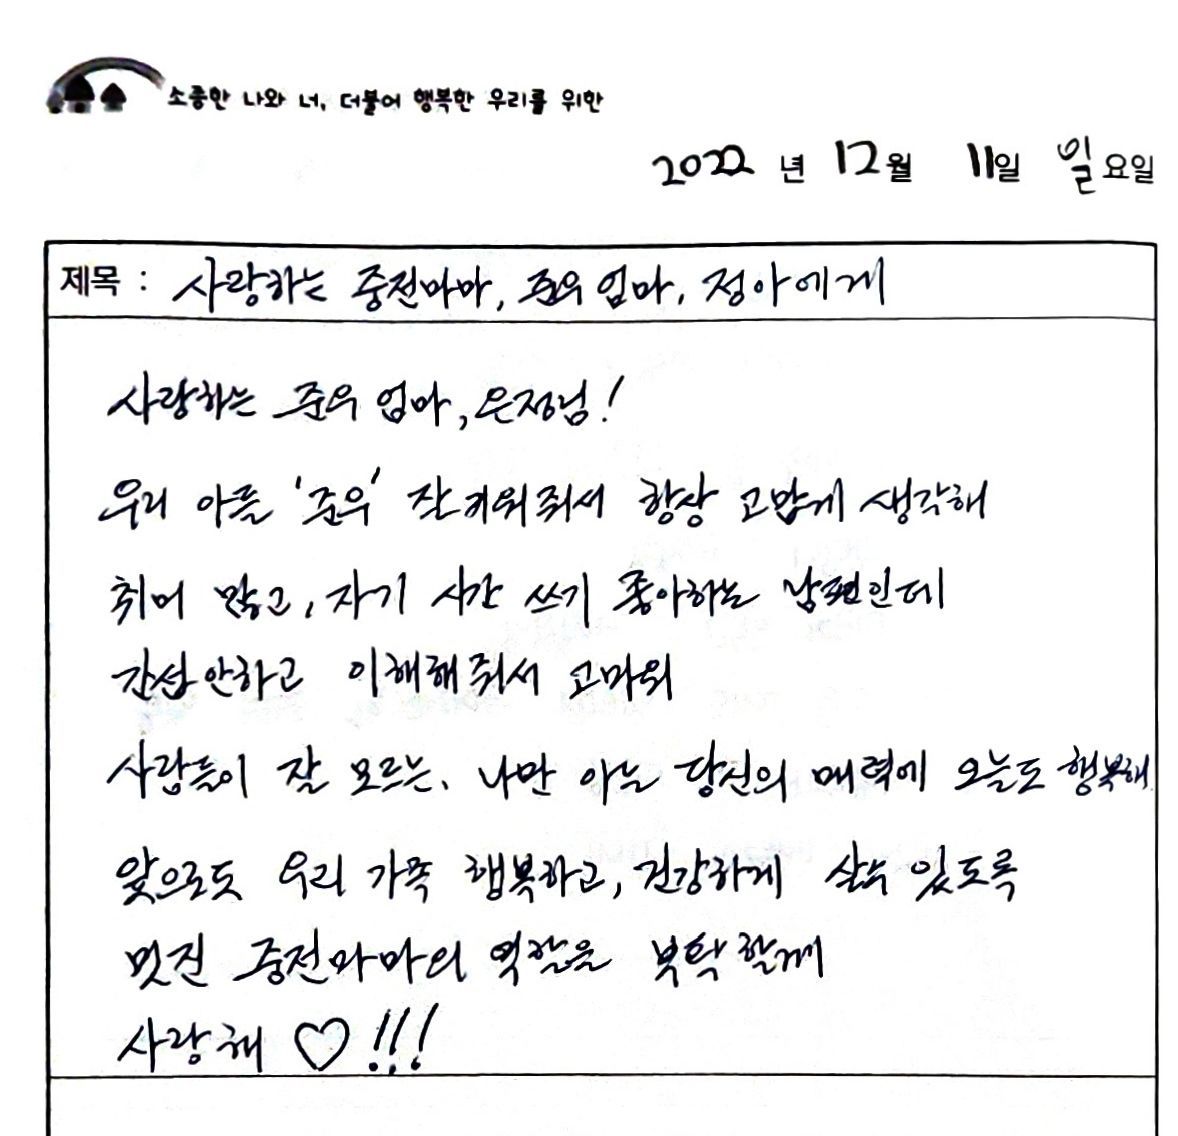 소중한 나와 너, 더불어 행복한 우리를 위한
2022 년 12월 11일 일요일
제목 : 사랑하는 중전마마, 준우 엄마, 정아에게
사랑하는 준우 엄마, 은정님!
우리 아들 '준우' 잘 키워줘서 항상 고맙게 생각해
취미 많고, 자기 시간 쓰기 좋아하는 남편인데
간섭 안하고 이해해줘서 고마워
사람들이 잘 모르는, 나만 아는 당신의 매력에 오늘도 행복해
앞으로도 우리 가족 행복하고, 건강하게 살수 있도록
멋진 중전마마의 역할을 부탁할게
사랑해 ♡!!!